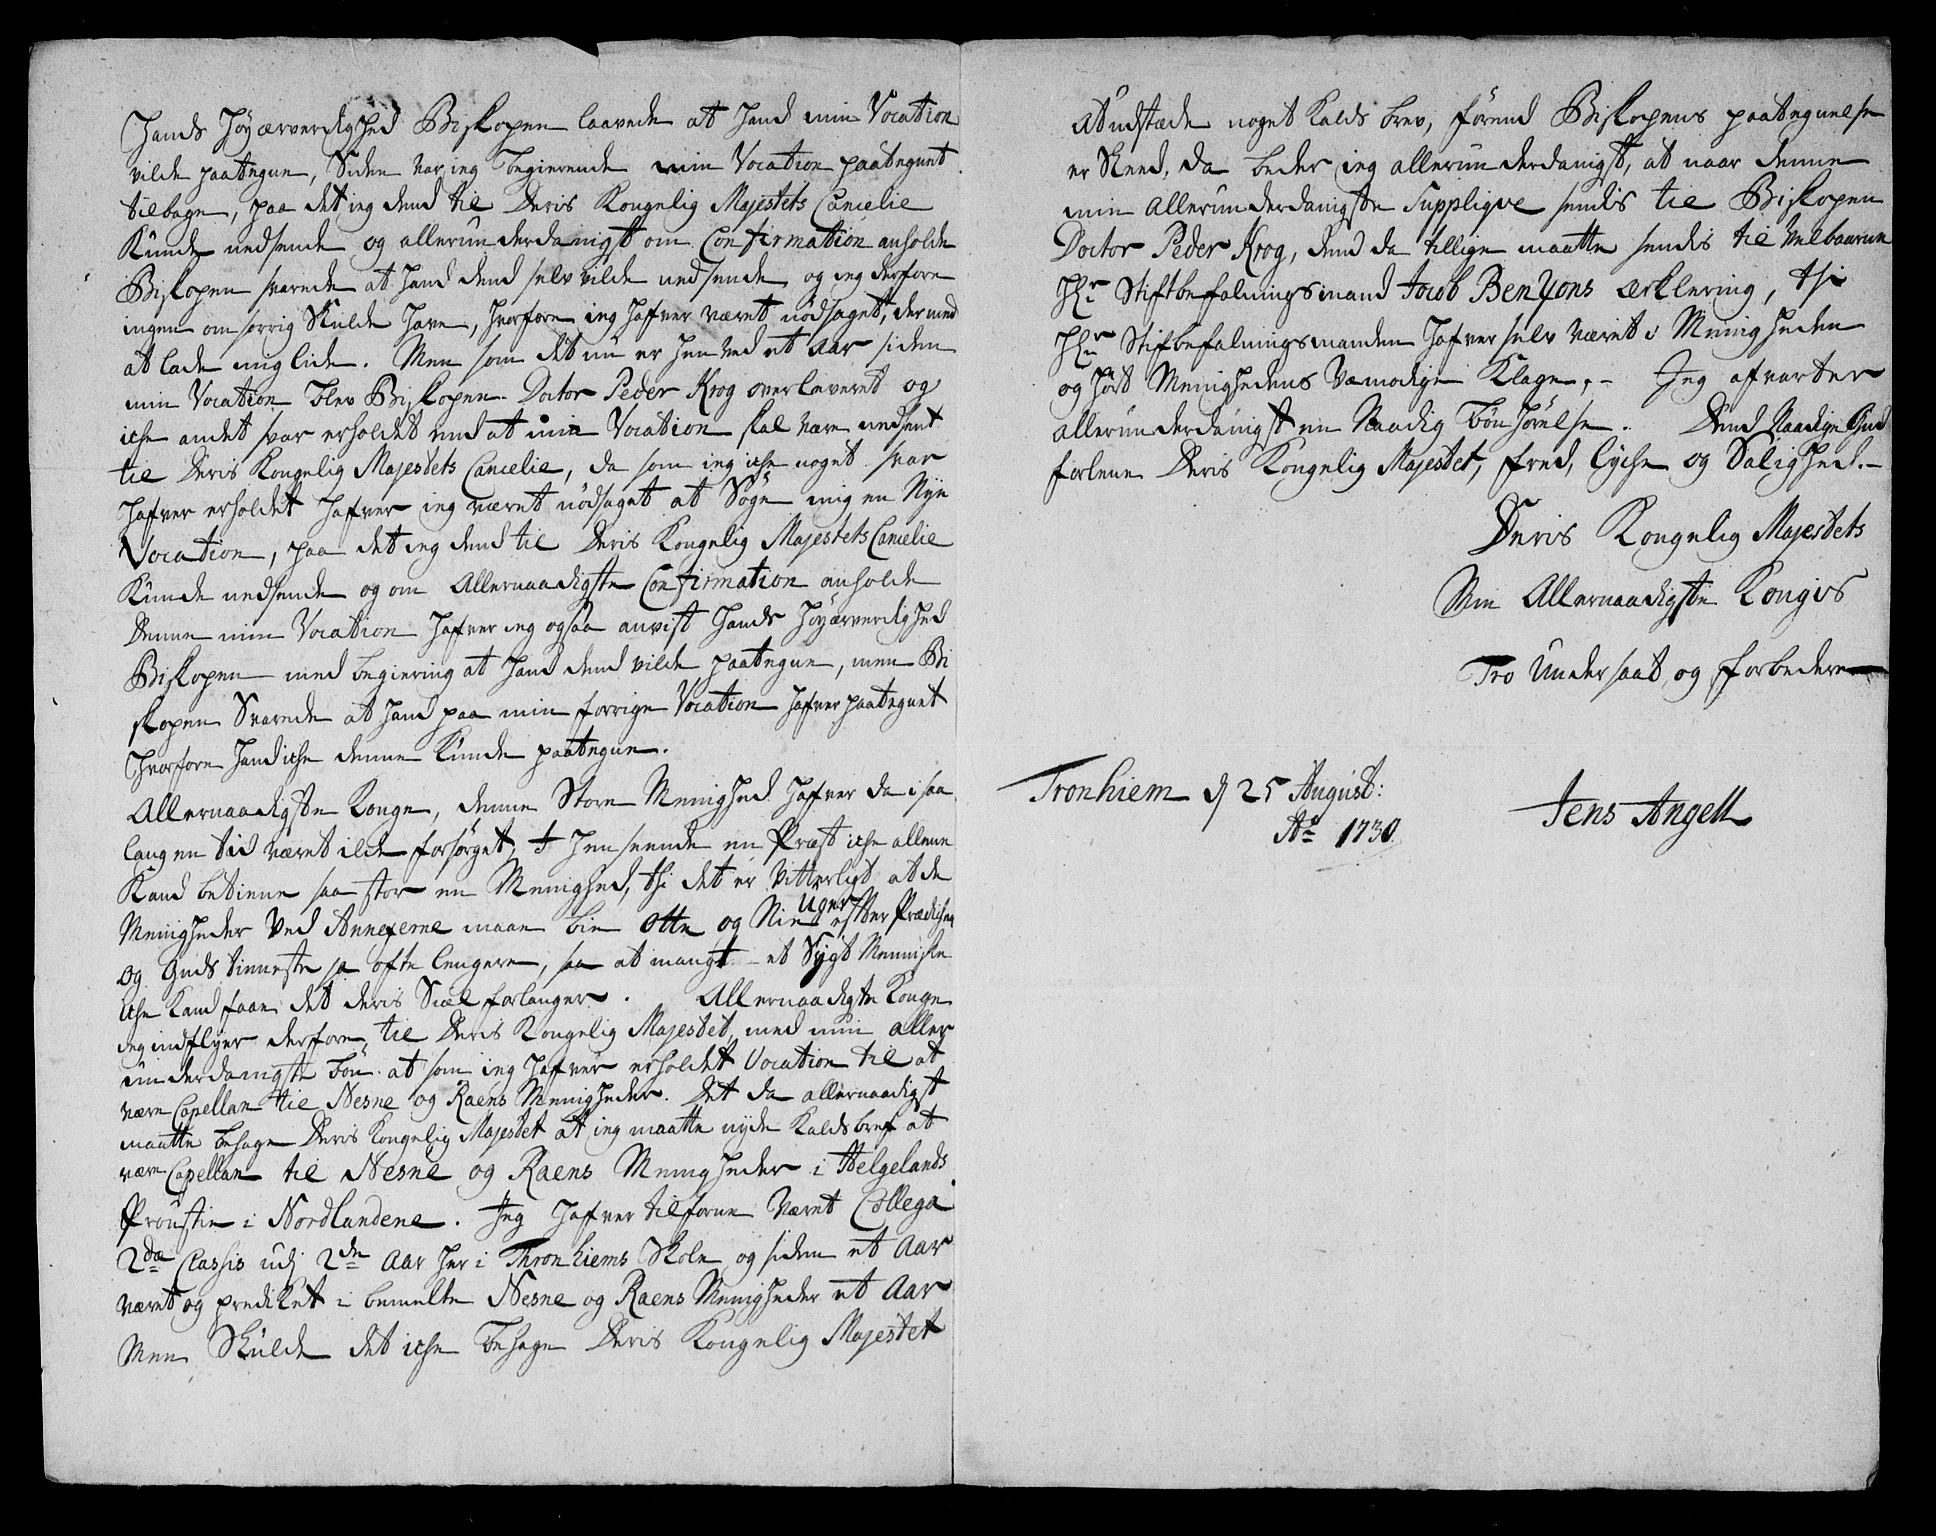 Hands Høyærverdighed Biskopen laavede at hand min Vocation
vilde paategne, Siden var ieg begierende min Vocation paategnet
tilbage, paa det ieg dend til Deris Kongelig Majestets Cancelie
Kunde nedsende og allerunderdanigst om Confirmation anholde
Biskopen svarede at hand dend selv vilde nedsende, og ieg derfore
ingen omsorrig Skulde have, hvorfore ieg hafver været nödsaget, dermed
at lade mig lide. Men som det nu er hen ved et Aar siden
min Vocation blev Biskopen Doctor Peder Krog overlaveret og
iche andet svar erholdet end at min Vocation skal være nedsent
til Deris Kongelig Majestets Cancelie, da som ieg iche noget svar
hafver erholdet hafver ieg været nödsaget at Søge mig en Nye
Vocation, paa det ieg dend til Deris Kongelig Majestets Cancelie
Kunde nedsende og om Allernaadigste Confirmation anholde
Denne min Vocation hafver ieg ogsaa anvist Hands Høyærverdighed
Biskopen med begiering at hand dend vilde paategne, men Bi
skopen Svarede at hand paa min forrige Vocation hafver paategnet
hvorfore hand iche denne Kunde paategne.
Allernaadigste Konge, denne Store Menighed hafver da i saa
lang en tid været ilde forsørget, I henseende en Præst iche allene
Kand betiene saa stor en Menighed, thi det er Vitterligt at de
Menigheder Ved Annexerne maae bie Otte og Nie Uger efter Prædichen
og Guds tienneste ja ofte lengere, saa at mangt et Sygt Menniske
iche Kand faae det deris Siæl forlanger. Allernaadigste Konge
ieg indflyer derfore, til Deris Kongelig Majestet, med min aller
underdanigste bön at som ieg hafver erholdet Vocation til at
være Capellan til Nesne og Raens Menigheder. Det da allernaadigst
maatte behage Deris Kongelig Majestet at ieg maatte nyde Kaldsbref at
være Capellan til Nesne og Raens Menigheder i Helgelands
Proustie i Nordlandene. Jeg hafver tilforne Været Collega
2da Classis udj 2de Aar her i Thronhiems Skole og siden et Aar
været og prediket i bemelte Nesne og Raens Menigheder et Aar
Men Skulde det iche behage Deris Kongelig Majestet
at udstæde noget Kalds brev, förend Biskopens paategnelse
er Skeed, da beder ieg allerunderdanigst, at naar denne
min Allerunderdanigste Supplique sendis til Biskopen
Doctor Peder Krog, dend da tillige maatte sendis til Velbaarne
Hr Stiftbefalningsmand Jacob Benzons ærklering, thi
Hr Stifbefalningsmanden hafver selv været i Menigheden
og hört Menighedens Vemodige Klage, - Jeg afvarter
allerunderdanigst en Naadig bönhörelse. Dend Naadige Gud
forlene Deris Kongelig Majestet, fred, lyche og Salighed.-
Deris Kongelig Majestets
Min Allernaadigste Kongis
Tro Undersaat og forbedere
Tronhiem d 25 August:
Ao 1730.
Jens Angell